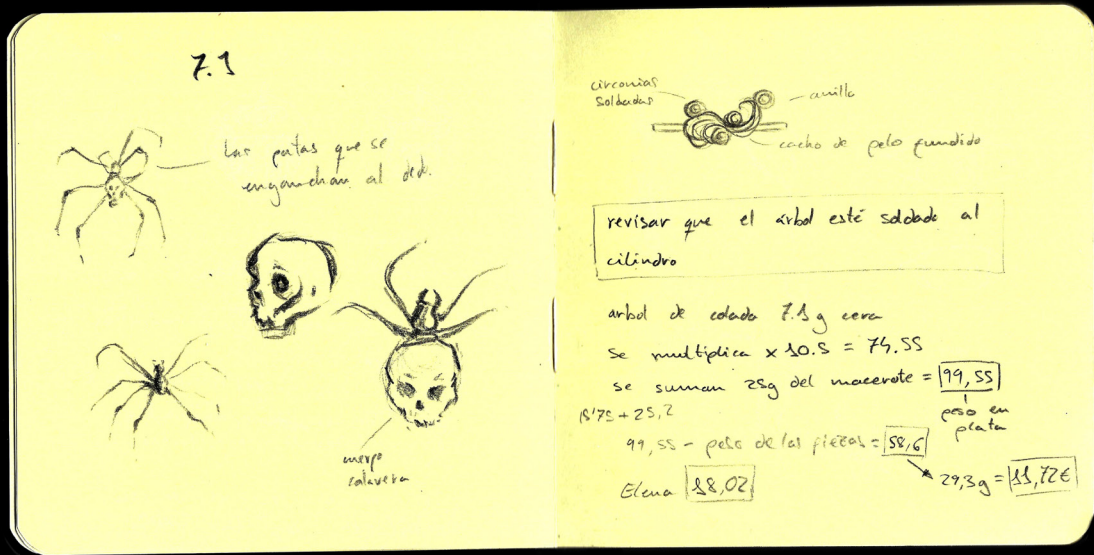 7.1
Las patas que se
enganchan al dedo.
cuerpo
calavera
circonias
soldadas
anilla
cacho de pelo fundido
revisar que el árbol esté soldado al
cilindro
arbol de colada 7.1 g cera
se multiplica x 10.5 = 74.55
se suman 25g del macerote = 99,55
peso en
plata
15'75 + 25,2
99,55 - peso de las piezas = 58,6
29,3g = 11,72€
Elena 18,02